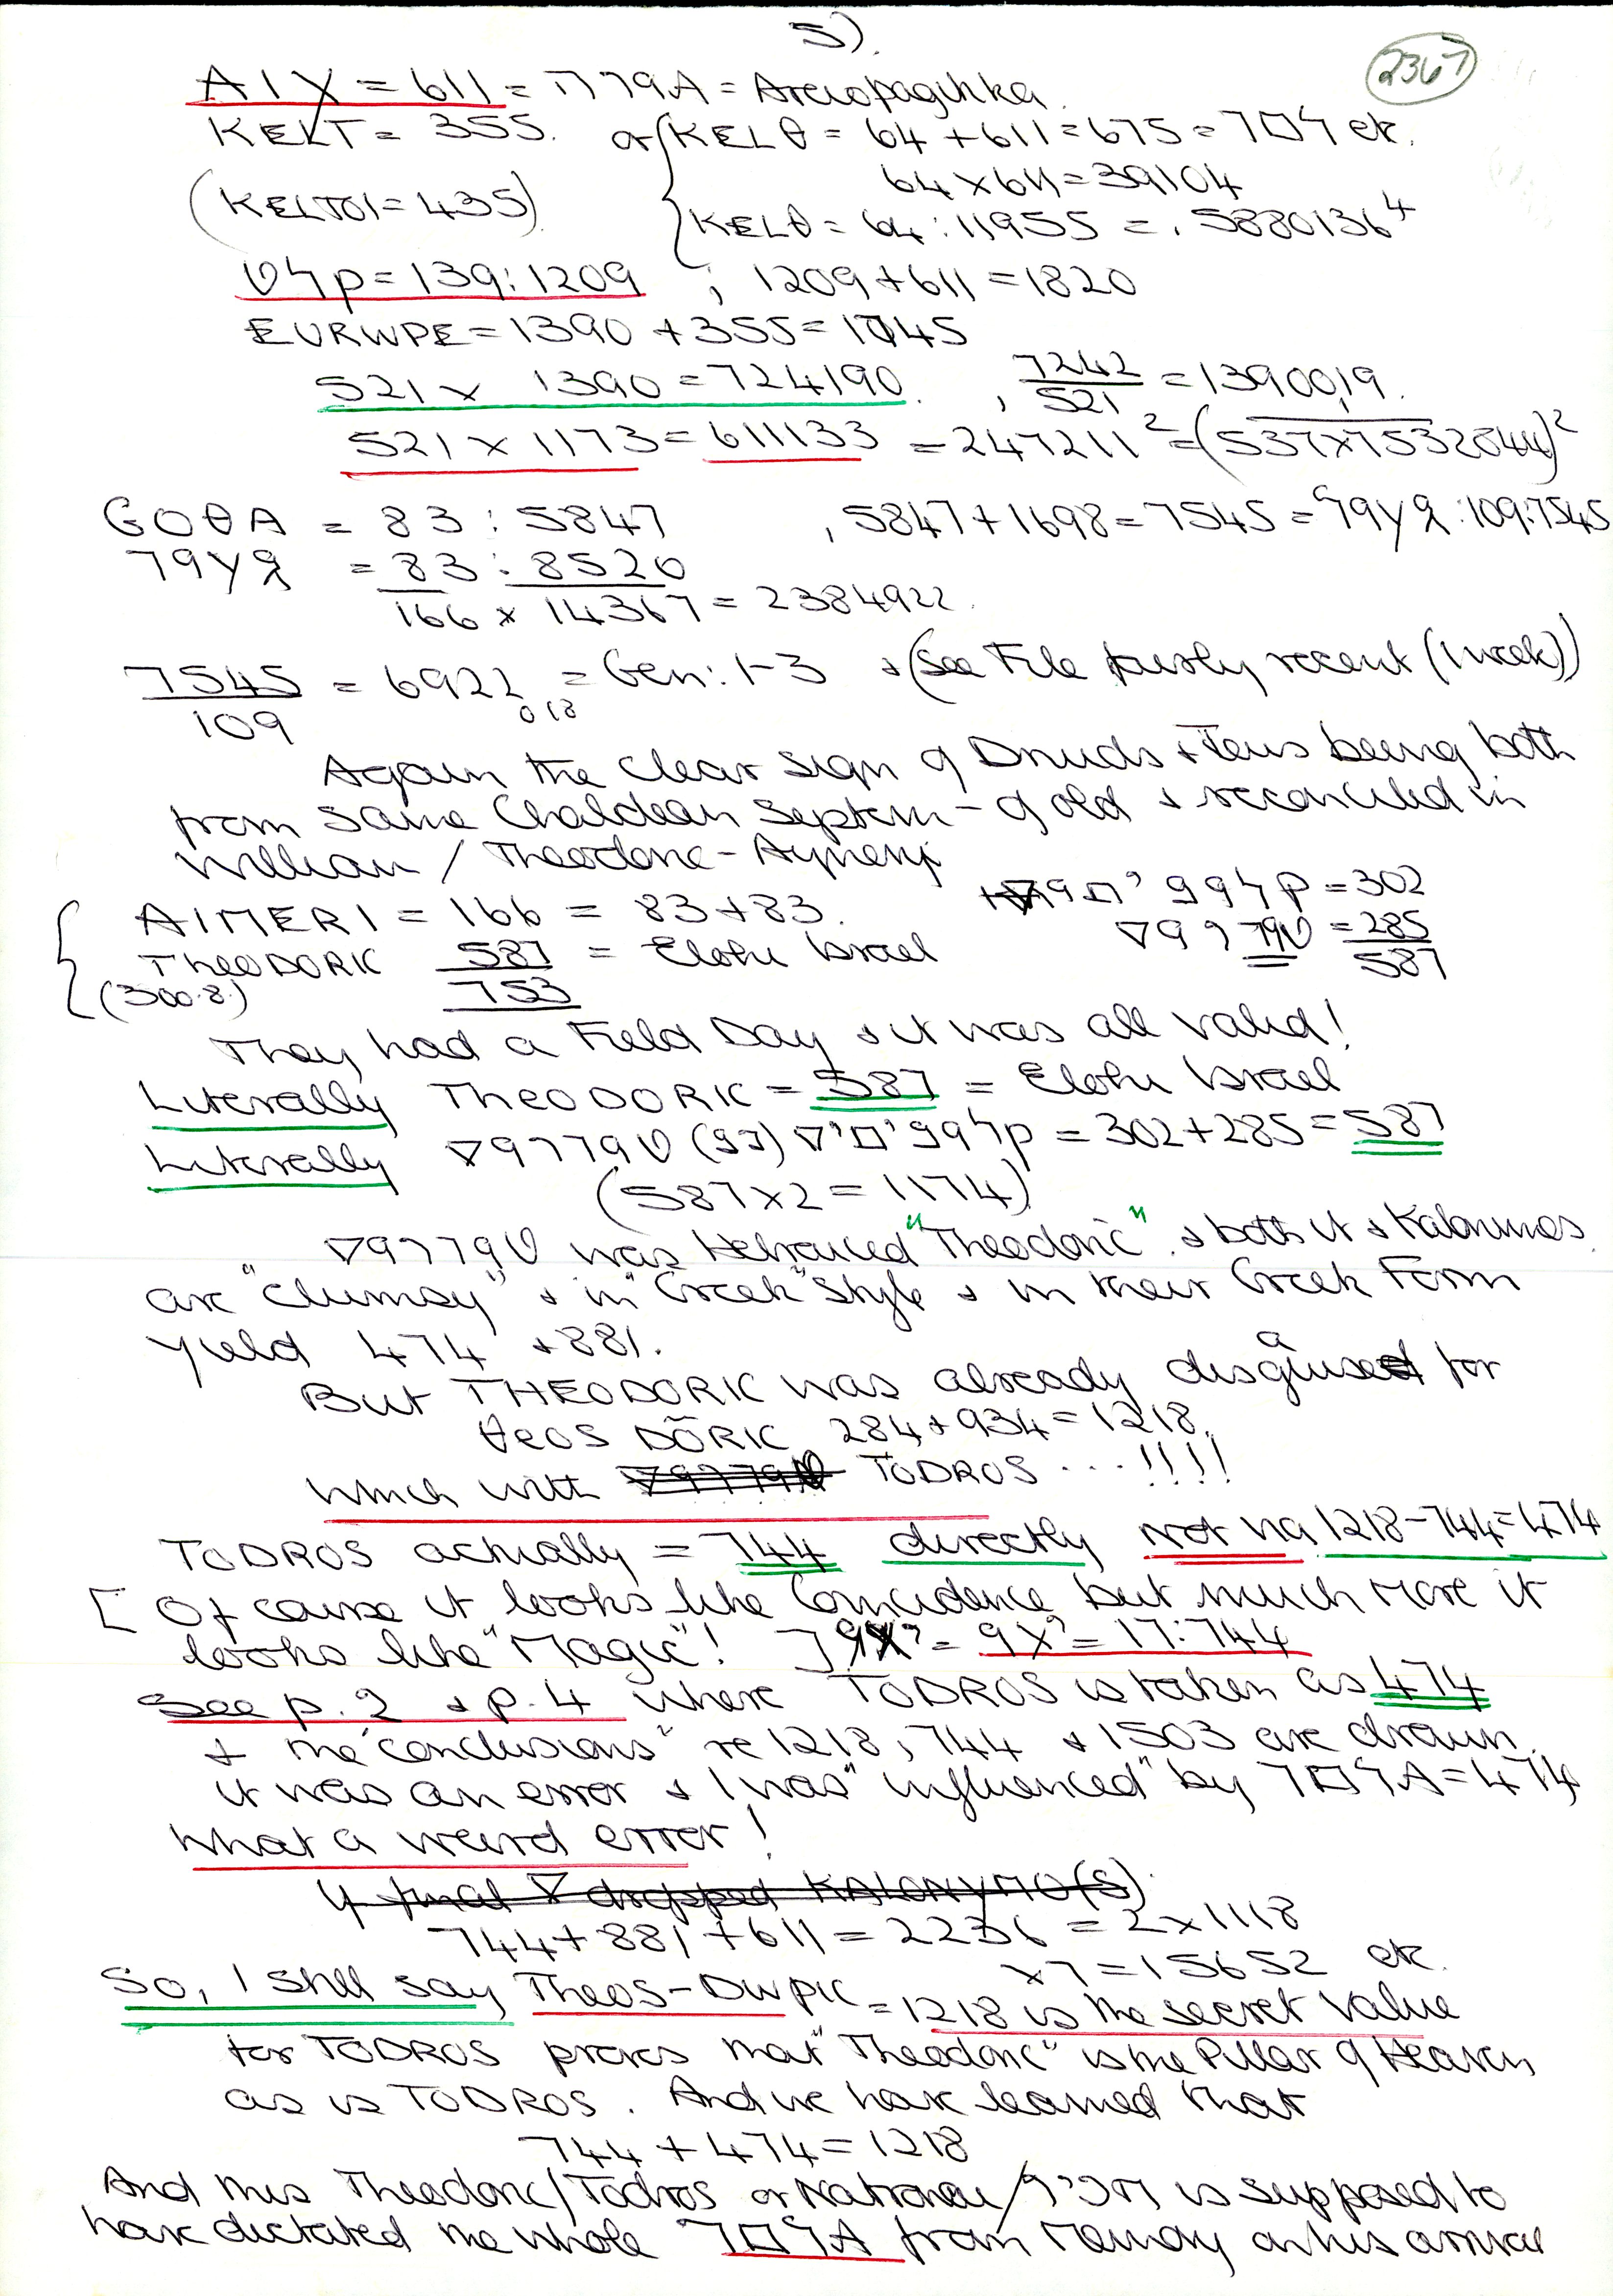 5).
2367
AIX = 611 = = Areiopagitika
KELT = 355. or KELθ = 64 + 611 = 675 = etc.
64 x 611 = 39104
(KELTOI = 435)
KELθ = 64 : 11955 = . 5880136⁴
= 139 : 1209 ; 1209 + 611 = 1820
EURWPE = 1390 + 355 = 1745
521 x 1390 = 724190. , 7242/521 = 1390019.
521 x 1173 = 611133 = 247211² = (537 x 7532844)²
GOθA = 83 : 5847 , 5847 + 1698 = 7545 = : 109:7545
= 83 : 8520
166 x 14367 = 2384922.
7545/109 = 6922 018 = Gen: 1-3 + (See File fairly recent (1 week))
Again the clear sign of Druids + Jews being both
from same Chaldean System - of old + reconciled in
William / Theodoric - Aymery
AIMERI = 166 = 83 + 83. = 302
THEODORIK 587 = Elohe Israel = 285
(300.8.) 753 587
They had a Field Day + it was all valid!
Literally THEODORIK = 587 = Elohe Israel
Literally = 302 + 285 = 587
(587 x 2 = 1174)
was Hebraized "Theodoric" + both it + Kalonymos
are "clumsy" + in "Greek" style + in their Greek Form
yield 474 + 881.
But THEODORIK was already a disguise for
θEOS DÕRIK 284 + 934 = 1218.
Which with TODROS ... !!!!
TODROS actually = 744 directly not via 1218 - 744 = 474
[Of course it looks like Coincidence but much more it
looks like "Magic"! ] = = 17:744
See p. 2 + p. 4 where TODROS is taken as 474
+ the "conclusions" re 1218, 744 + 1503 are drawn.
it was an error + I was "influenced" by = 474
What a weird error!
744 + 881 + 611 = 2236 = 2 x 1118
x 7 = 15652 etc.
So, I still say Theos-Dwpic = 1218 is the secret value
for TODROS proves that "Theodoric" is the Pillar of Heaven
as is TODROS. And we have learned that
744 + 474 = 1218
And this Theodoric/Todros or Natronai / is supposed to
have dictated the whole from Memory on his arrival